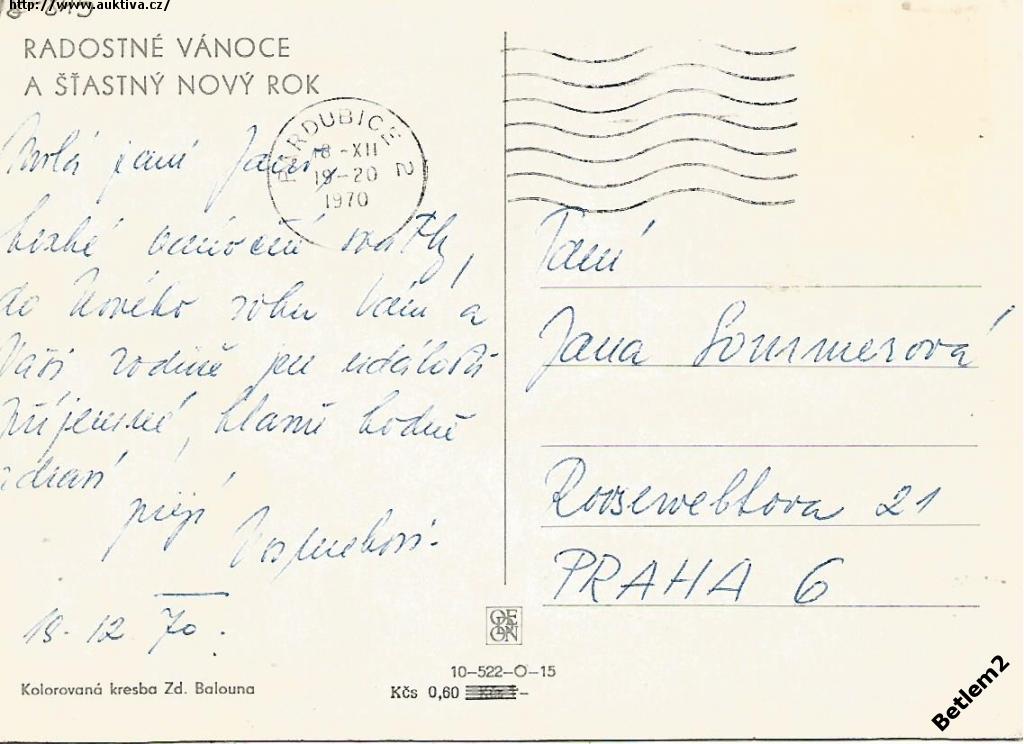 http://www.auktiva.cz/
RADOSTNÉ VÁNOCE
A ŠŤASTNÝ NOVÝ ROK
PARDUBICE 2
18-XII
18-20
1970
Milá paní Jano,
hezké vánoční svátky,
do Nového roku Vám a
Vaší rodině jen události
příjemné, hlavně hodně
zdraví
přejí
18. 12. 70.
Paní
Jana Sommerová
Rooseweltova 21
PRAHA 6
ODEON
10-522-O-15
Kčs 0,60
Kolorovaná kresba Zd. Balouna
Betlem2